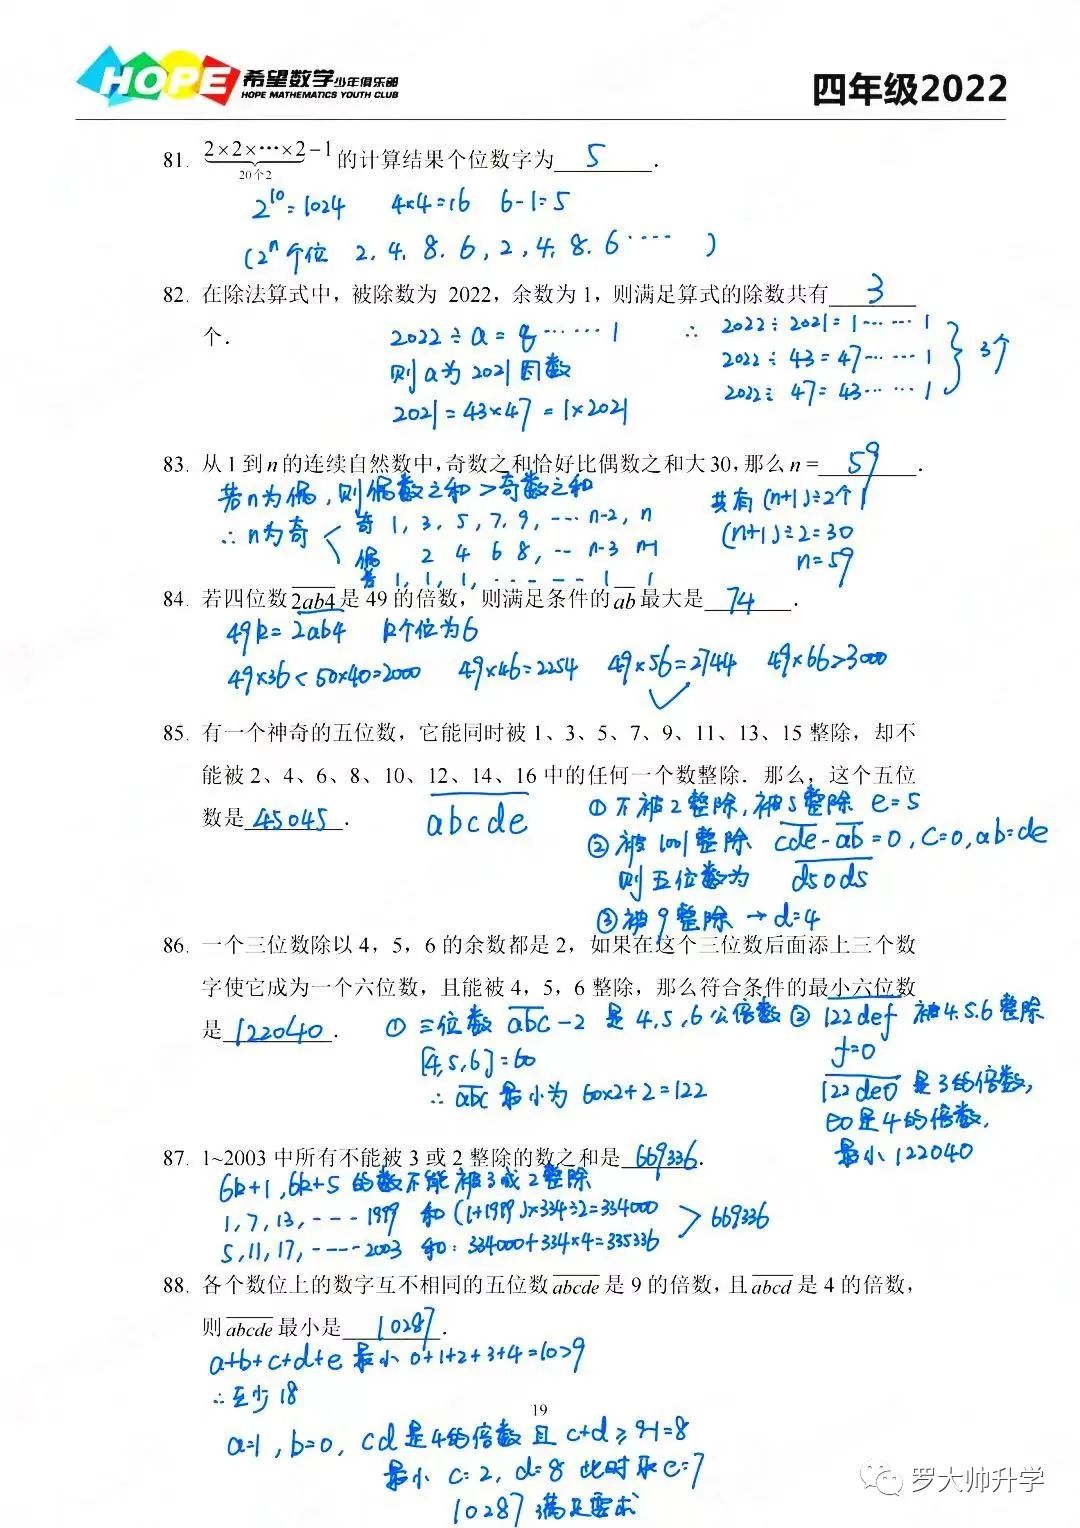 HOPE 希望数学少年俱乐部
HOPE MATHEMATICS YOUTH CLUB
四年级2022
81. 2×2×…×2－1的计算结果个位数字为 5 .
20个2
2^10=1024 4×4=16 6-1=5
(2^n个位 2.4.8.6,2,4,8.6…… )
82. 在除法算式中，被除数为 2022，余数为 1，则满足算式的除数共有 3
个．
2022÷a=q……1
则a为2021因数
2021=43×47=1×2021
∴ 2022÷2021=1……1
2022÷43=47……1
2022÷47=43……1
3个
83. 从 1 到 n 的连续自然数中，奇数之和恰好比偶数之和大 30，那么 n = 59 .
若n为偶，则偶数之和>奇数之和
∴n为奇
奇 1,3,5,7,9,…n-2,n
偶 2 4 6 8,…n-3 n-1
差 1,1,1,------1 1
共有(n+1)÷2个1
(n+1)÷2=30
n=59
84. 若四位数2ab4是 49 的倍数，则满足条件的ab最大是 74 .
49k=2ab4 k个位为6
49×36<50×40=2000 49×46=2254 49×56=2744 49×66>3000
85. 有一个神奇的五位数，它能同时被 1、3、5、7、9、11、13、15 整除，却不
能被 2、4、6、8、10、12、14、16 中的任何一个数整除．那么，这个五位
数是 45045 .
abcde
①不被2整除,被5整除 e=5
②被1001整除 cde-ab=0,c=0,ab=de
则五位数为 d50d5
③被9整除→d=4
86. 一个三位数除以 4，5，6 的余数都是 2，如果在这个三位数后面添上三个数
字使它成为一个六位数，且能被 4，5，6 整除，那么符合条件的最小六位数
是 122040 .
①三位数abc-2是4,5,6公倍数
[4,5,6]=60
∴abc最小为60×2+2=122
②122def被4.5.6整除
f=0
122de0是3的倍数,
e0是4的倍数.
最小122040
87. 1~2003 中所有不能被 3 或 2 整除的数之和是 669336 .
6k+1,6k+5的数不能被3或2整除
1,7,13,----1999 和(1+1999)×334÷2=334000
5,11,17,-----2003 和:334000+334×4=335336
669336
88. 各个数位上的数字互不相同的五位数abcde是 9 的倍数，且abcd是 4 的倍数，
则abcde最小是 10287 .
a+b+c+d+e最小0+1+2+3+4=10>9
∴至少18
19
a=1,b=0,cd是4的倍数且c+d≥9-1=8
最小c=2,d=8此时取e=7
10287满足要求
罗大帅升学